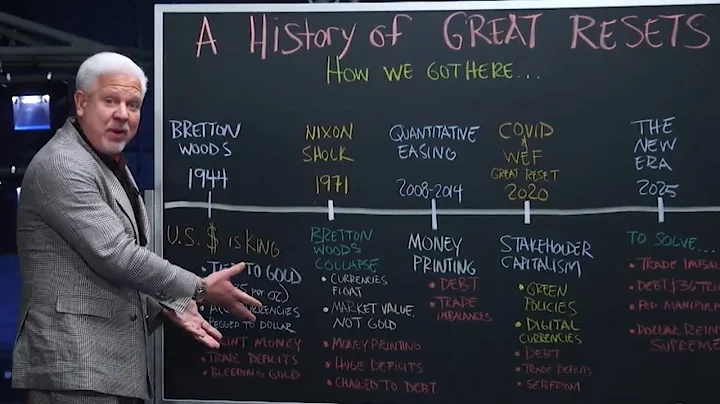 A HISTORY OF GREAT RESETS
HOW WE GOT HERE...
BRETTON
WOODS
1944
NIXON
SHOCK
1971
QUANTITATIVE
EASING
2008-2014
COVID
&
WEF
GREAT RESET
2020
THE
NEW
ERA
2025
U.S. $ IS KING
• TIED TO GOLD
PER OZ)
PEGGED TO DOLLAR
PRINT MONEY
• TRADE DEFICITS
• BLEEDING GOLD
BRETTON
WOODS
COLLAPSE
• CURRENCIES
FLOAT
• MARKET VALUE,
NOT GOLD
• MONEY PRINTING
• HUGE DEFICITS
• CHAINED TO DEBT
MONEY
PRINTING
• DEBT
• TRADE
IMBALANCES
STAKEHOLDER
CAPITALISM
• GREEN
POLICIES
• DIGITAL
CURRENCIES
• DEBT
• TRADE DEFICITS
• SERFDOM
TO SOLVE...
• TRADE IMBAL
• DEBT $36 TRI
• FED MANIPUL
• DOLLAR REIN
SUPREME